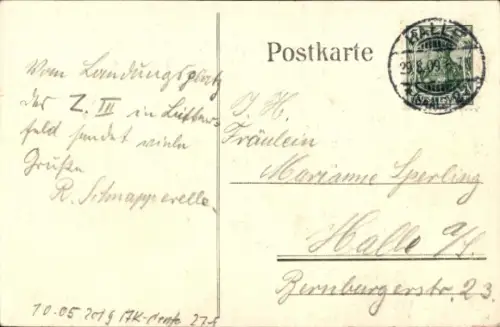 Postkarte
HALLE
29.8.09
Vom Landungsplatz
des Z. III in
feld sendet viele
Grüße
R. Schnapperelle
I. H.
Fräulein
Marianne Sperling
Halle a/S.
Bernburgerstr. 23.
10.05 2019